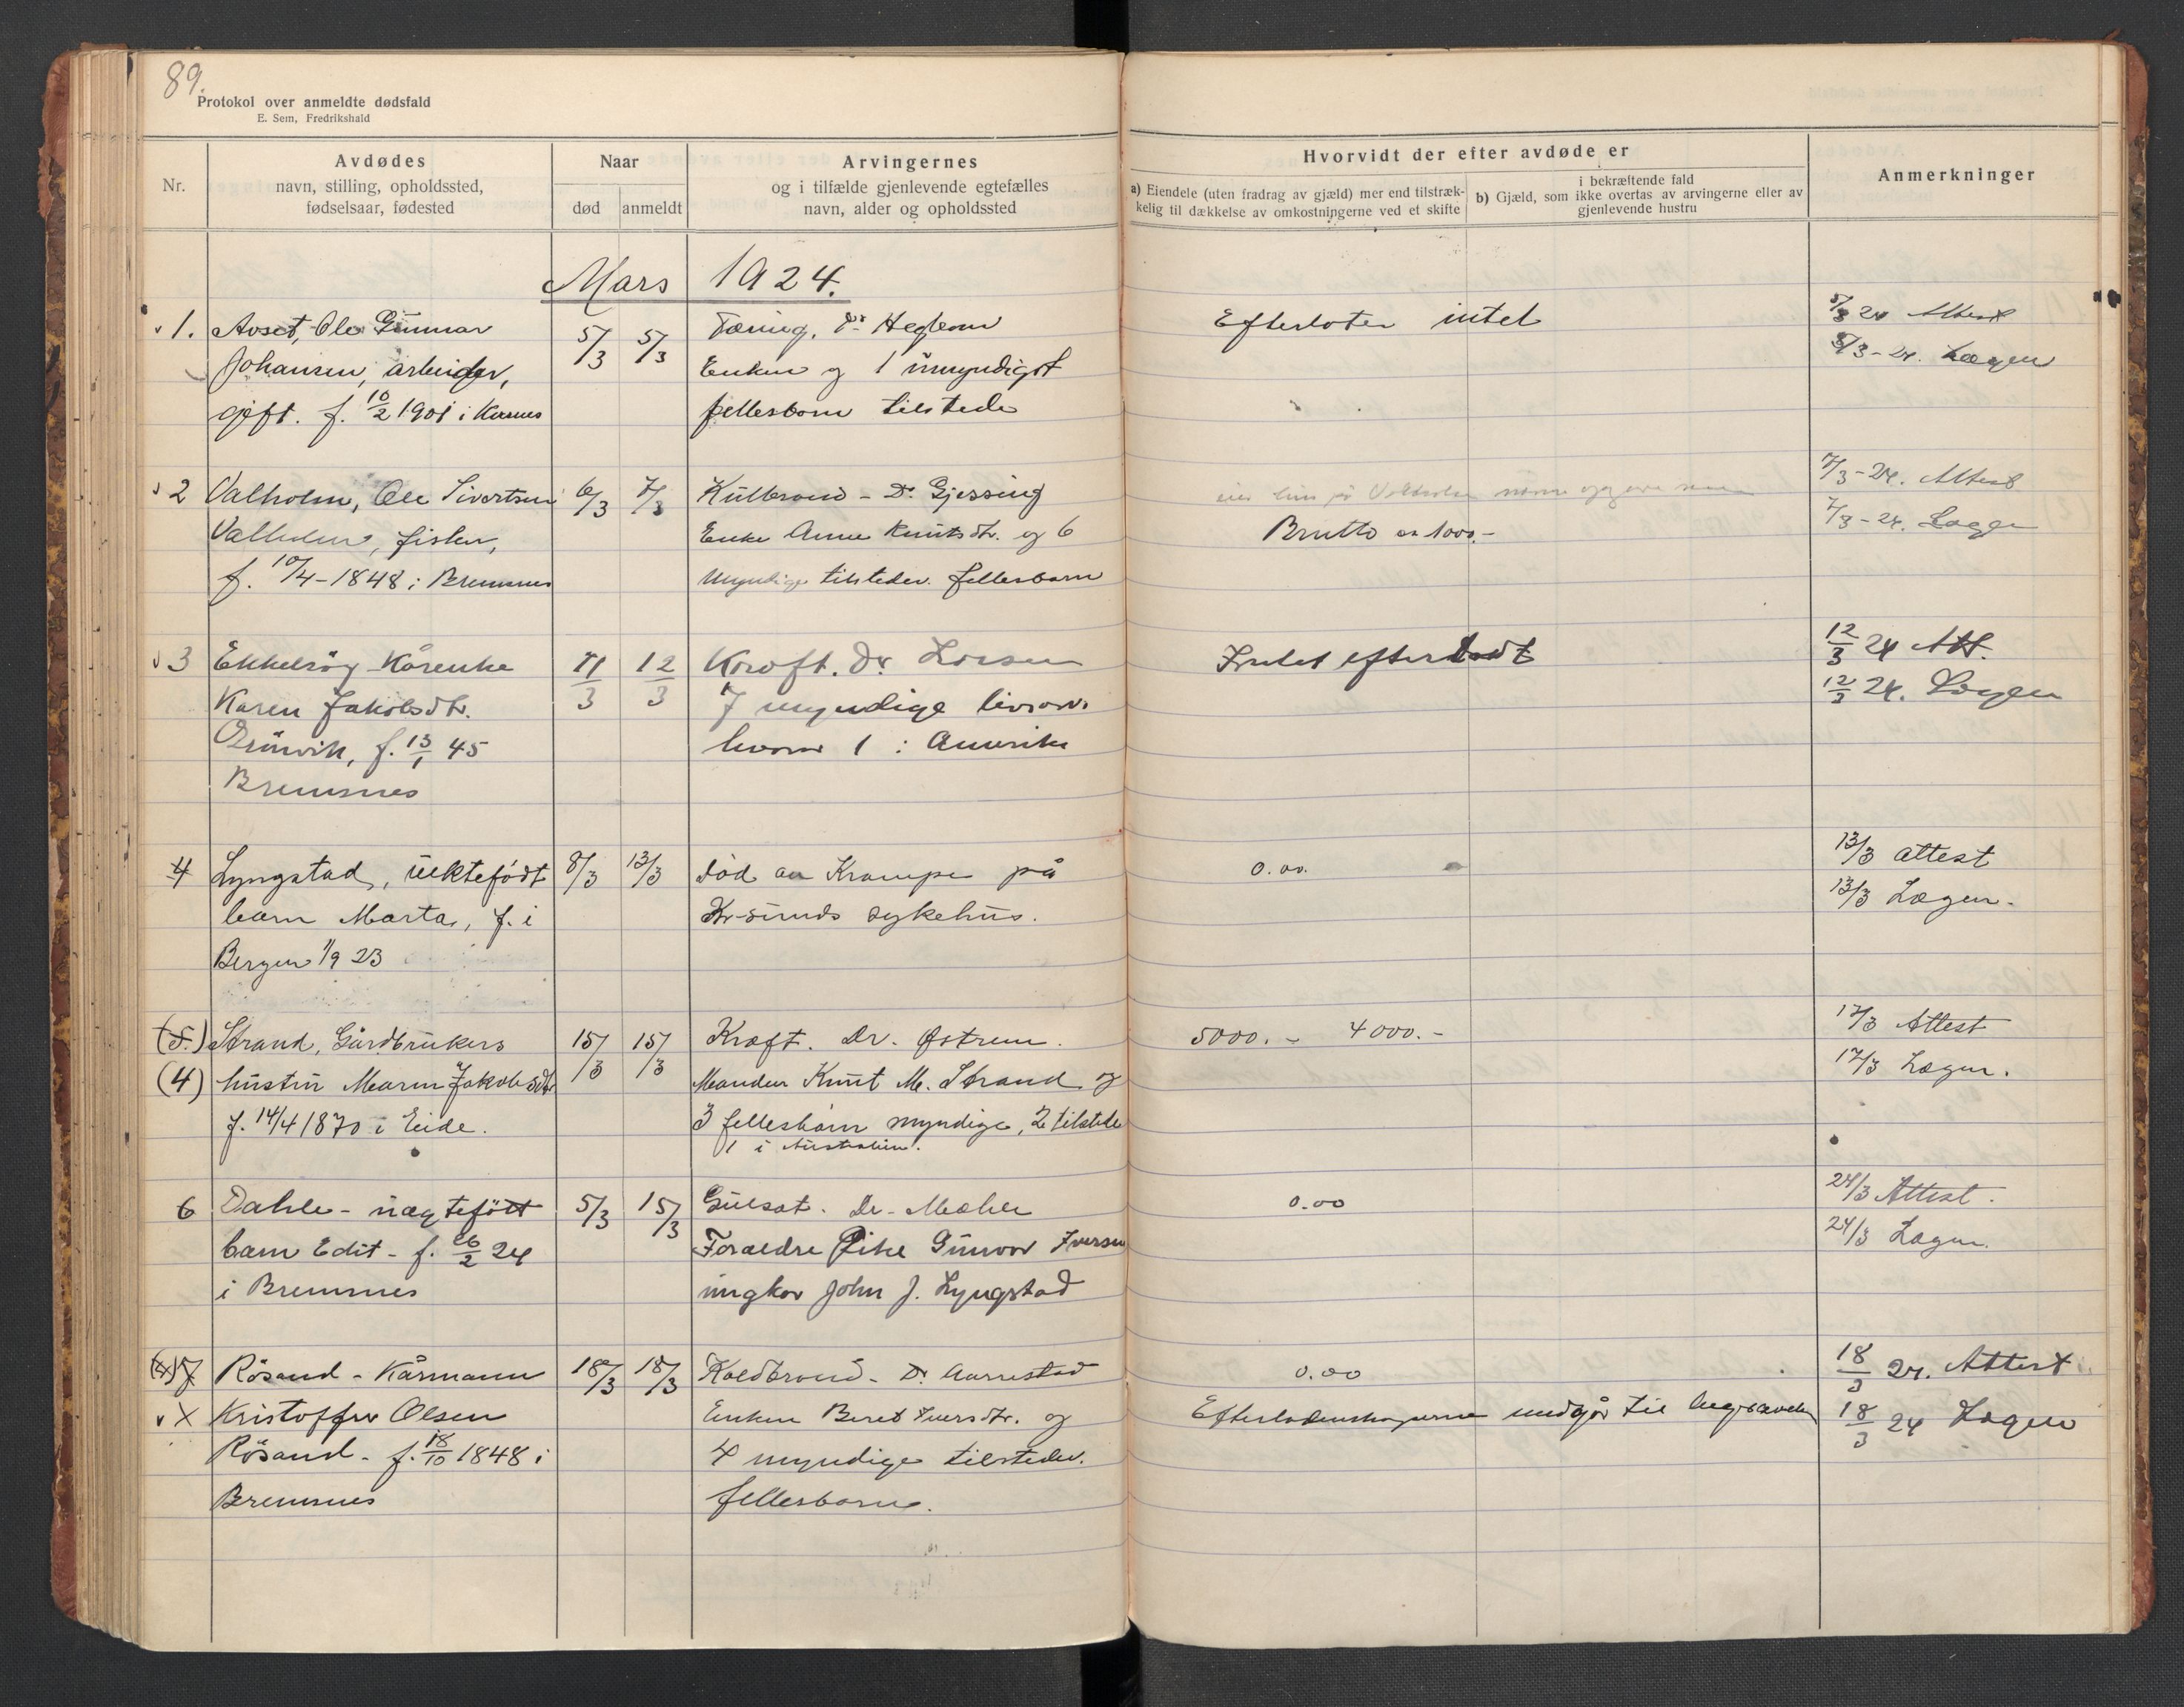 89.
Protokol over anmeldte dødsfald
E. Sem, Fredrikshald
Nr.
Avdødes
navn, stilling, opholdssted,
fødselsaar, fødested
Naar
død
anmeldt
Arvingernes
og i tilfælde gjenlevende egtefælles
navn, alder og opholdssted
Hvorvidt der efter avdøde er
a) Eiendele (uten fradrag av gjæld) mer end tilstræk-
kelig til dækkelse av omkostningerne ved et skifte
i bekræftende fald
b) Gjæld, som ikke overtas av arvingerne eller av
gjenlevende hustru
Anmerkninger
Mars 1924.
1. Avset, Ole Gunnar
Johansen, arbeider,
gift. f. 10/2 1901 i Kornes
5/3 5/3
Tæring, Dr Heglum
Enken og 1 umyndigt
fellesbarn tilstede
Efterlater intet
5/3 24 Attest
5/3-24. Lægen
2 Valholm, Ole Sivertsen
Valholm, fisker,
f. 10/4-1848 i Bremsnes
6/3 7/3
Kulbrand - Dr Gjessing
Enke Anne Knutsdtr. og 6
Myndige tilstedev. fellesbarn
eier hus på
Brutto ca 1000.-
7/3-24. Attest
7/3-24. Læge
3 Ekkelsøy Kårenke
Karen Jakobsdtr.
f. 13/1 45
Bremsnes
11/3 12/3
Kræft. Dr. Larsen
7 myndige livsarv.
hvorav 1 i Amerika
Intet efterladt
12/3 24 Att.
12/3 24. Lægen
4 Lyngstad, uektefødt
barn Marta, f. i
Bergen 1/9 23
8/3 13/3
Død av Krampe på
Kr-sunds sykehus.
0.00.
13/3 attest
13/3 Lægen.
(5.) Strand, Gårdbrukers
(4) hustru Maren Jakobsdtr
f. 14/4 1870 i Eide.
15/3 15/3
Kræft. Dr. Østrem.
Manden Knut M. Strand og
3 fellesbarn myndige, 2 tilstede
1 i Australien.
5000.- 4000.-
17/3 Attest
17/3 Lægen.
6 Dahle - uægtefött
barn Edit - f. 26/2 24
i Bremsnes
5/3 15/3
Gulsot. Dr. Mæhle
Foraeldre Pike Gunvor Iversen
ungkar John J. Lyngstad
0.00
24/3 Attest.
24/3 Lægen.
(4) 7 Rösand - Kårmann
x Kristoffer Olsen
Rösand - f. 18/10 1848 i
Bremsnes
18/3 18/3
Koldbrand - Dr Aarrestad
Enken Beret Iversdtr. og
4 myndige tilstedev.
fellesbarn.
0.00
Efterladenskaperne medgår til begravelse
18/3 24. Attest
18/3 24 Lægen